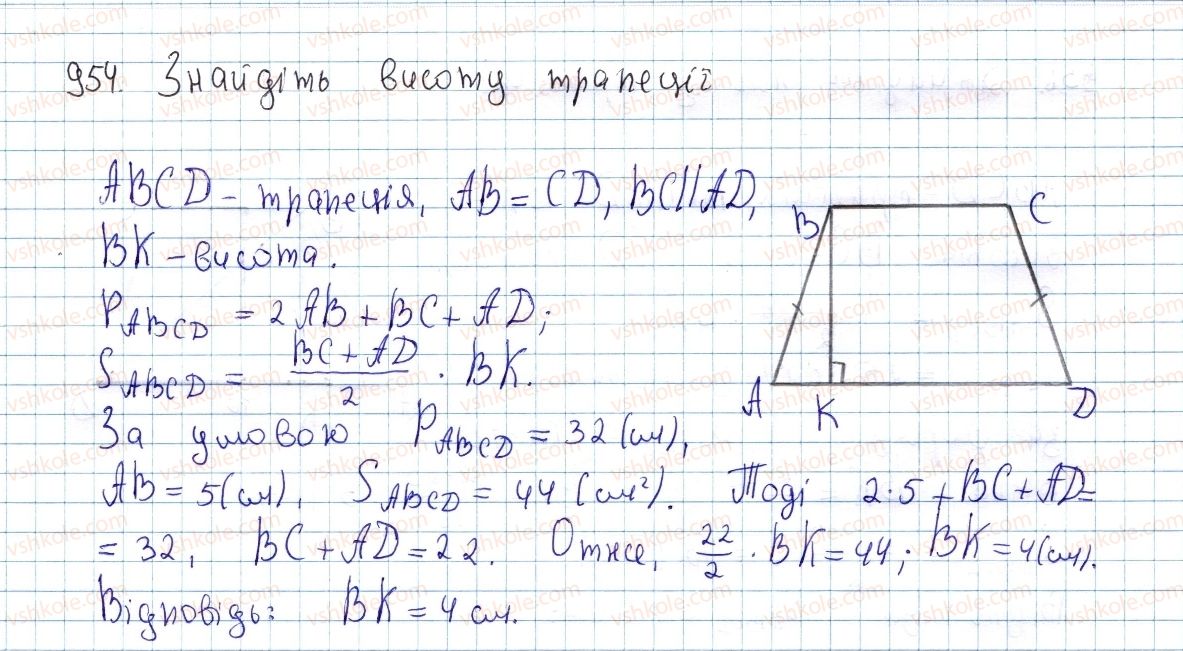 954. Знайдіть висоту трапеції
ABCD – трапеція, AB = CD, BC || AD,
BK – висота.
P_ABCD = 2AB + BC + AD;
S_ABCD = (BC + AD)/2 · BK.
За умовою P_ABCD = 32 (см),
AB = 5 (см), S_ABCD = 44 (см²). Тоді 2·5 + BC + AD =
= 32, BC + AD = 22. Отже, 22/2 · BK = 44; BK = 4 (см).
Відповідь: BK = 4 см.
B
C
A
K
D